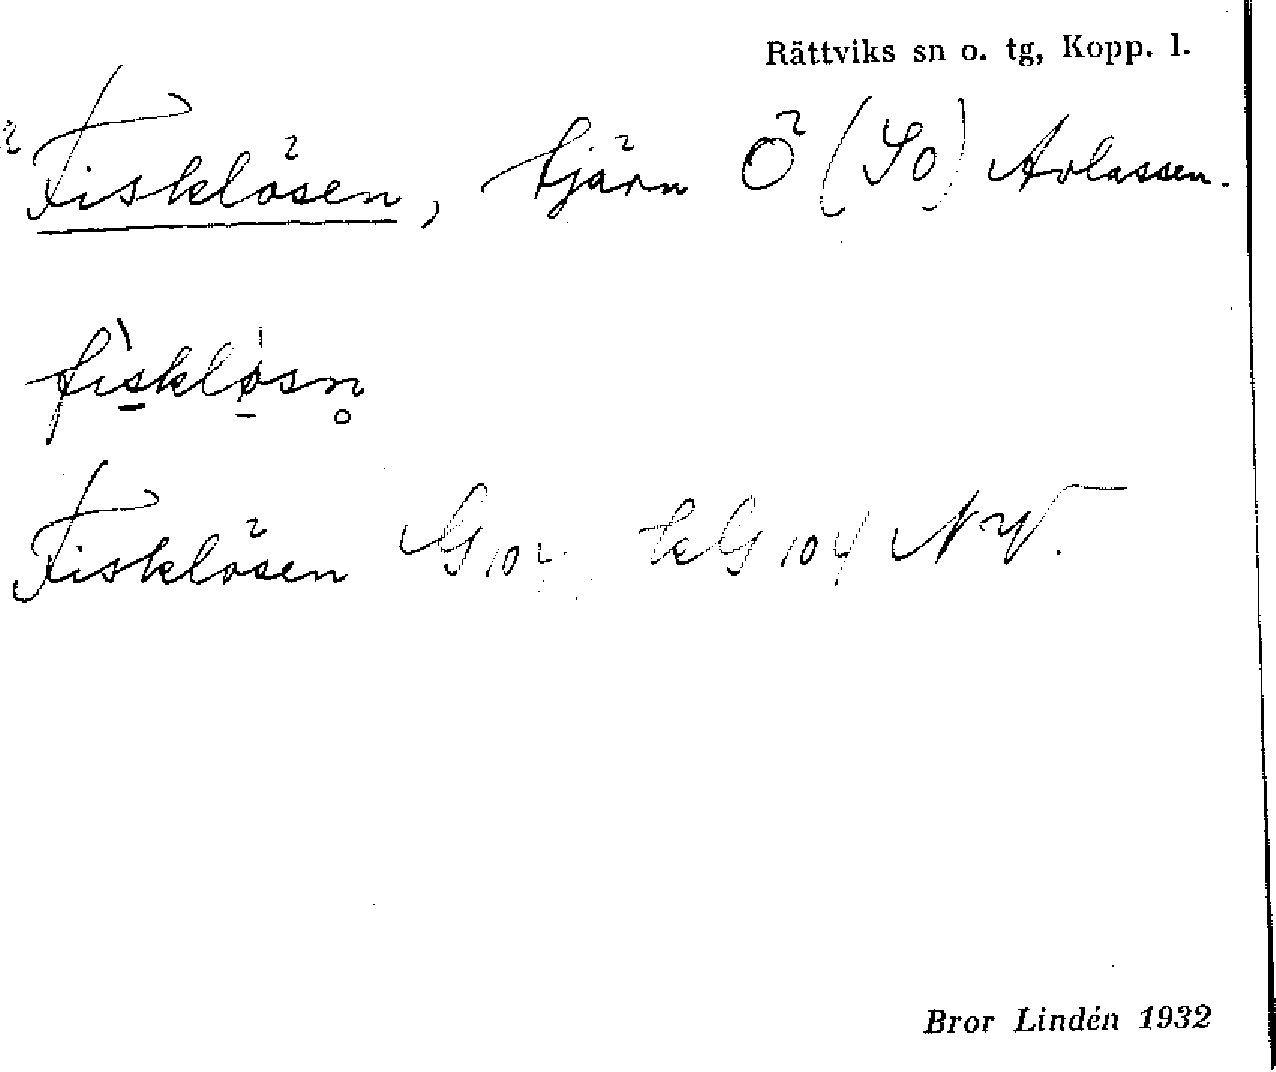 Rättviks sn o. tg, Kopp. l.
Fisklösen, tjärn Ö (SO) Arlassen.
fisklösn
Fisklösen G 104 kG 104 NV.
Bror Lindén 1932